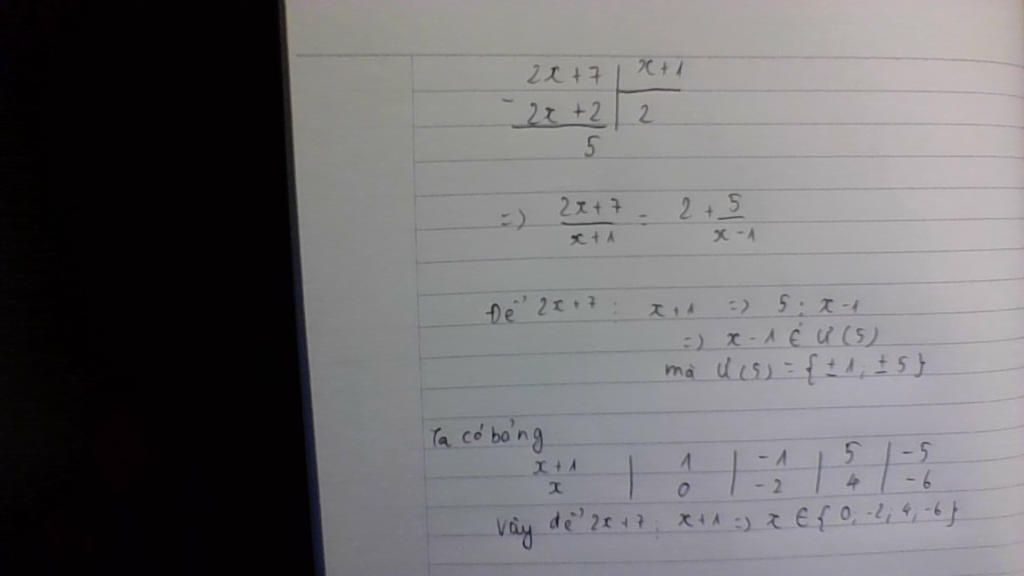 2x+7 | x+1
- 2x+2 | 2
5
=> 2x+7/x+1 = 2 + 5/x-1
Để 2x+7 ⋮ x+1 => 5 ⋮ x-1
=> x-1 ∈ Ư(5)
mà Ư(5) = {±1; ±5}
Ta có bảng
x+1 | 1 | -1 | 5 | -5
x | 0 | -2 | 4 | -6
Vậy để 2x+7 ⋮ x+1 => x ∈ {0; -2; 4; -6}